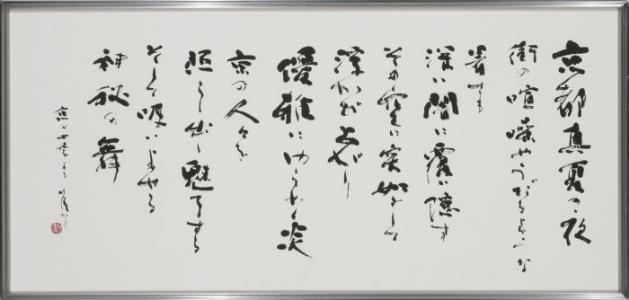 京都真夏の夜
街の喧噪やうだるような
暑さも
深い闇に覆い隠す
その空に突如として
浮かび上がり
優雅にゆらめく炎
京の人々を
照らし出し魅了する
そして吸いよせる
神秘の舞
京の四季より